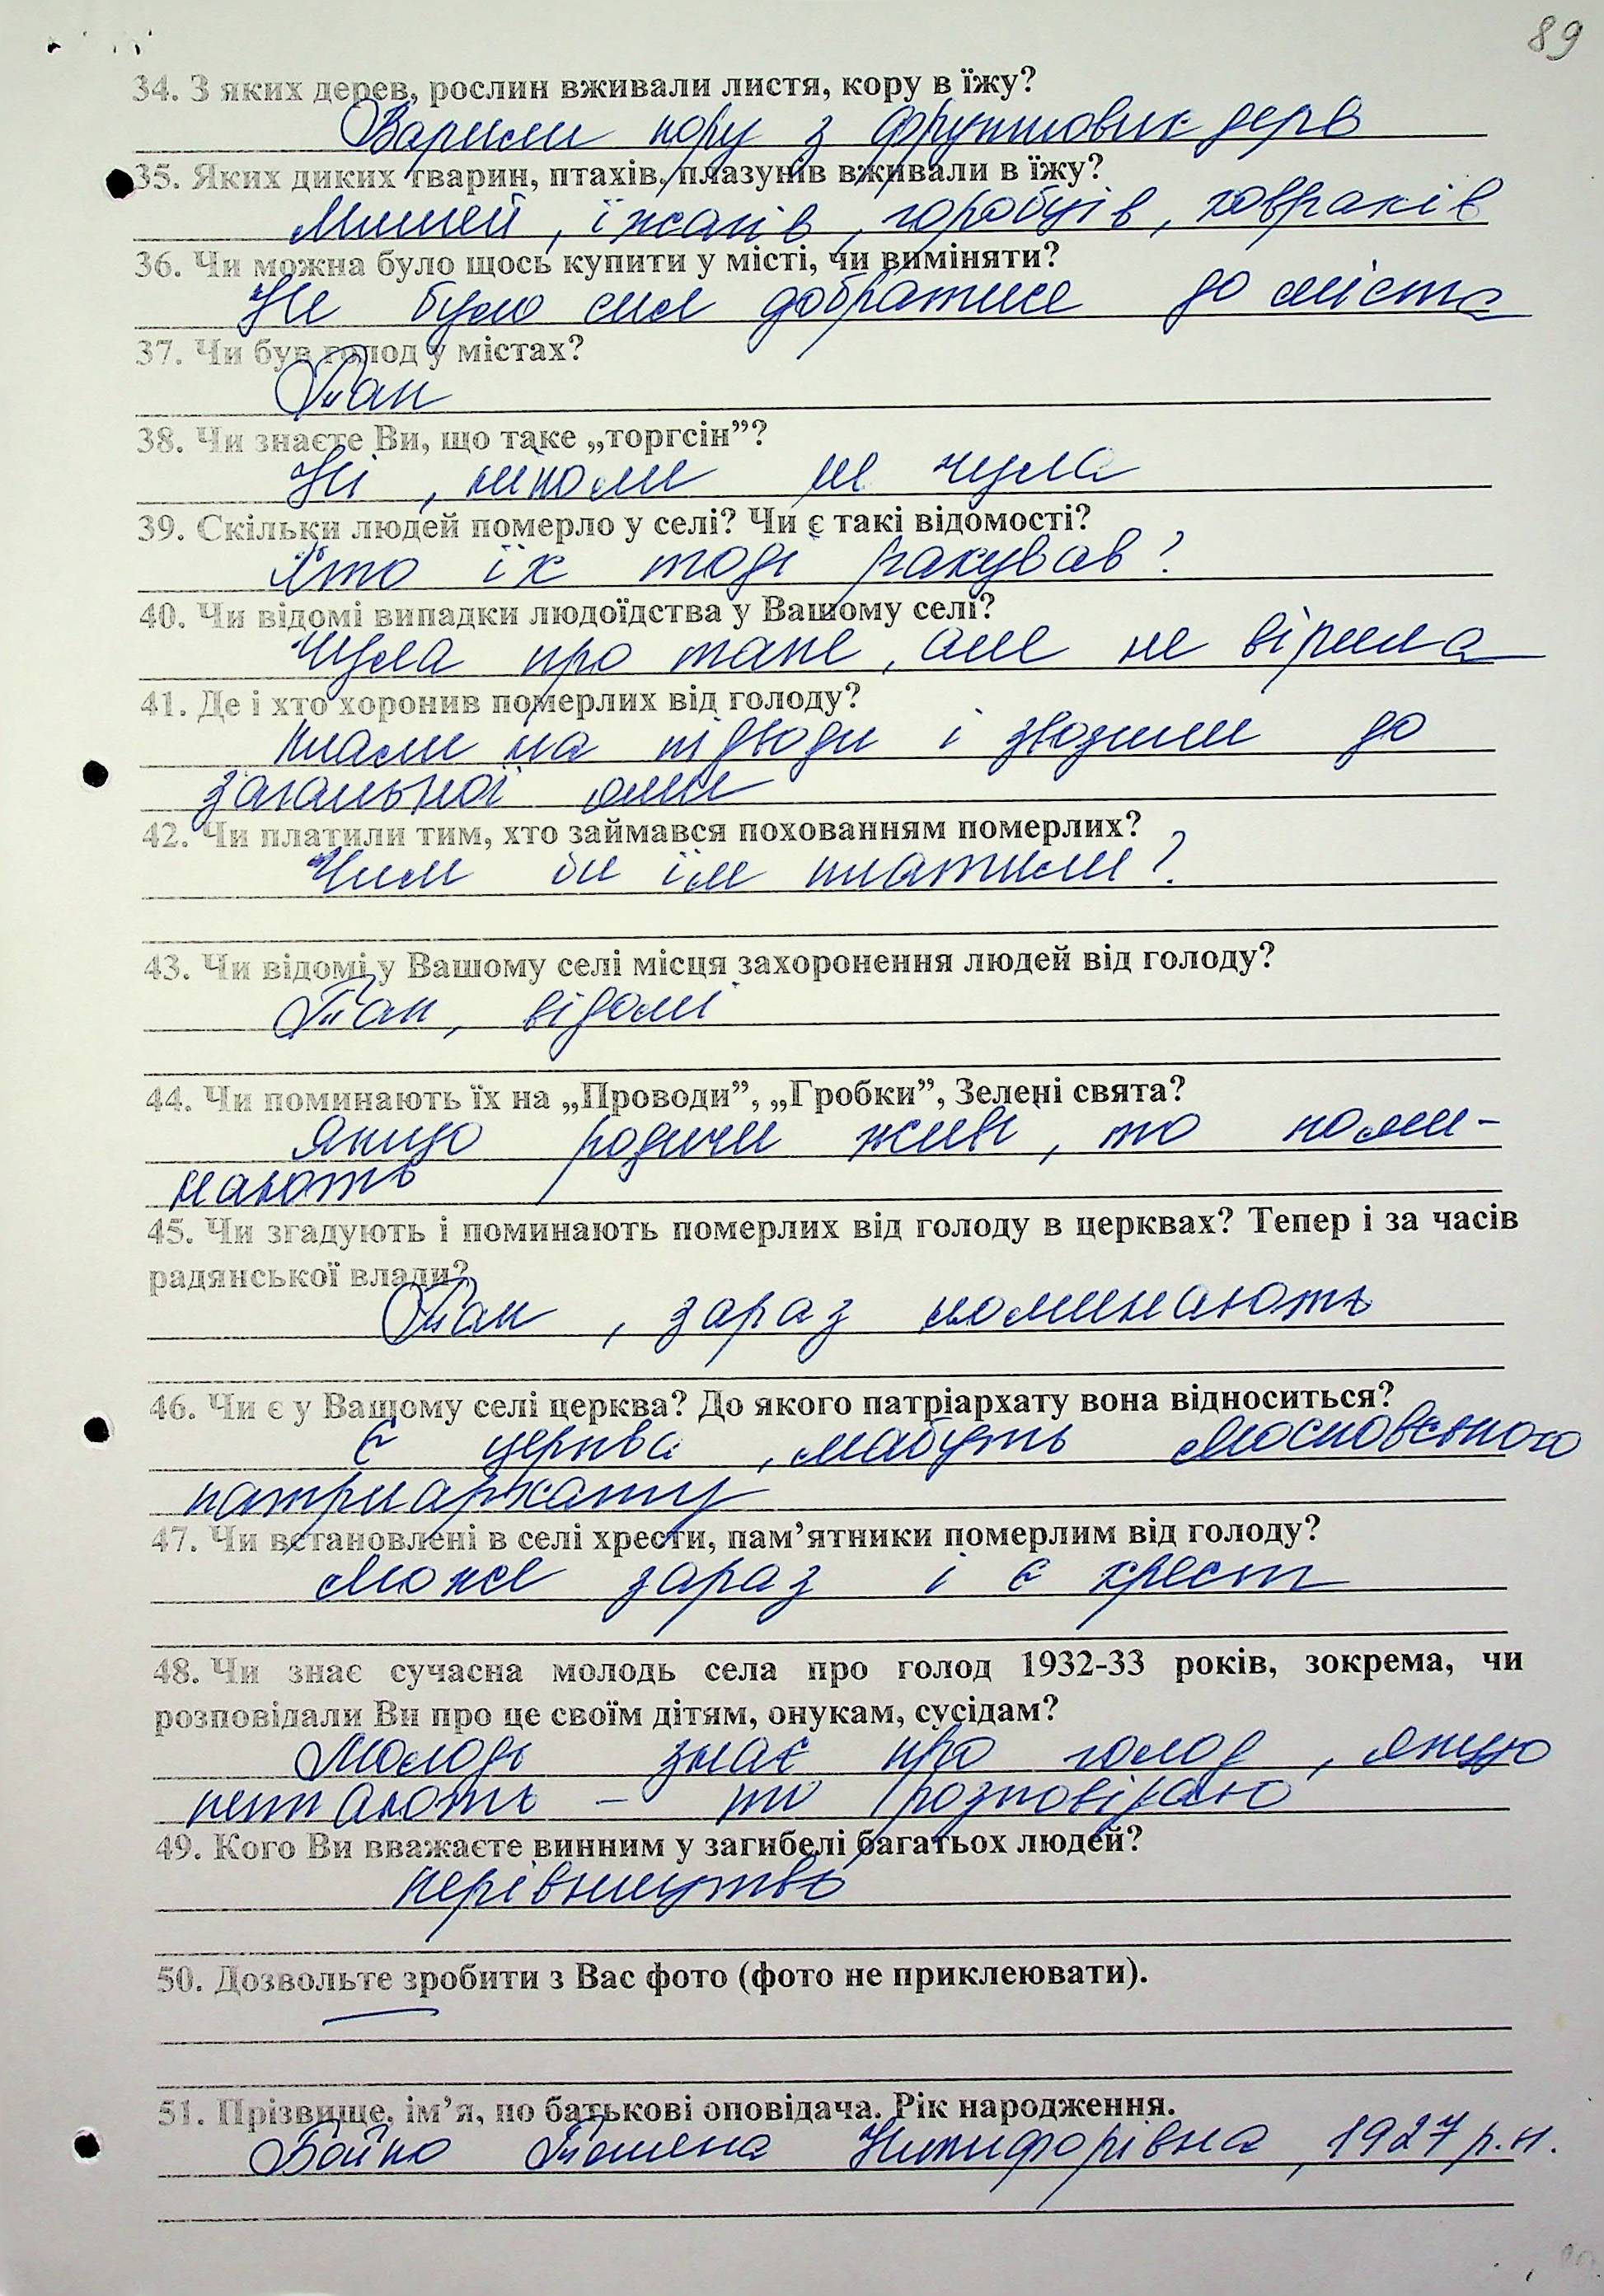 89
34. З яких дерев, рослин вживали листя, кору в їжу?
Варили кору з фруктових дерв
35. Яких диких тварин, птахів, плазунів вживали в їжу?
Мишей, їжаків, горобців, ховраків
36. Чи можна було щось купити у місті, чи виміняти?
Не було сил добратися до міста
37. Чи був голод у містах?
Так
38. Чи знаєте Ви, що таке „торгсін”?
Ні, ніколи не чула
39. Скільки людей померло у селі? Чи є такі відомості?
Хто їх тоді рахував?
40. Чи відомі випадки людоїдства у Вашому селі?
Чула про таке, але не вірила
41. Де і хто хоронив померлих від голоду?
клали на підводи і звозили до
загальної ями
42. Чи платили тим, хто займався похованням померлих?
Чим би їм платили?
43. Чи відомі у Вашому селі місця захоронення людей від голоду?
Так, відомі
44. Чи поминають їх на „Проводи”, „Гробки”, Зелені свята?
Якщо родичи живі, то поми-
нають
45. Чи згадують і поминають померлих від голоду в церквах? Тепер і за часів
радянської влади?
Так, зараз поминають
46. Чи є у Вашому селі церква? До якого патріархату вона відноситься?
Є церква, мабуть Московського
патриархату
47. Чи встановлені в селі хрести, пам’ятники померлим від голоду?
Може зараз і є хрест
48. Чи знає сучасна молодь села про голод 1932-33 років, зокрема, чи
розповідали Ви про це своїм дітям, онукам, сусідам?
Молодь знає про голод, якщо
питають - то розповідаю
49. Кого Ви вважаєте винним у загибелі багатьох людей?
керівництво
50. Дозвольте зробити з Вас фото (фото не приклеювати).
51. Прізвище, ім’я, по батькові оповідача. Рік народження.
Бойко Нижифорівна, 1927 р.н.